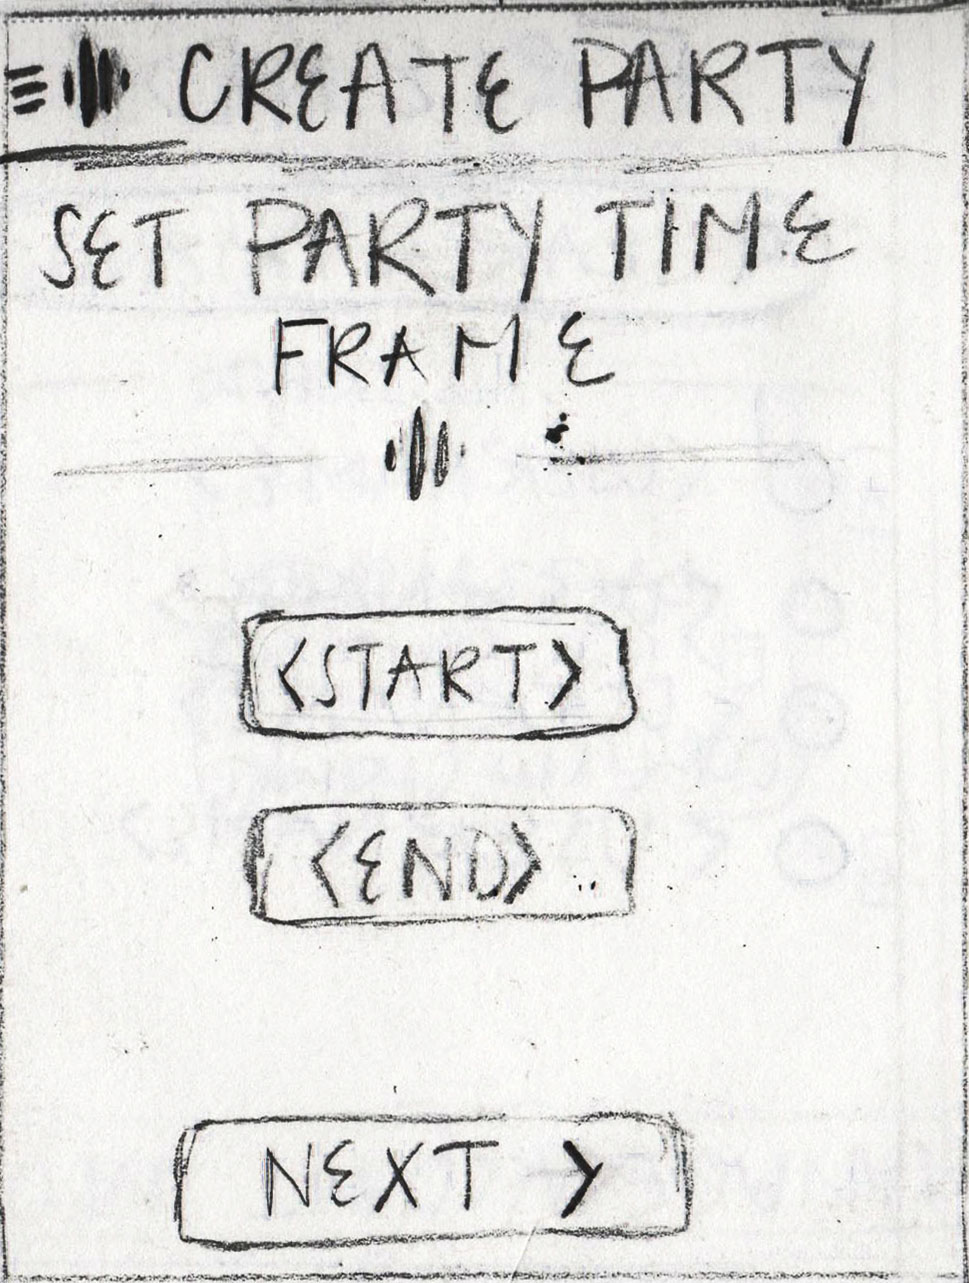 CREATE PARTY
SET PARTY TIME
FRAME
<START>
<END>
NEXT >